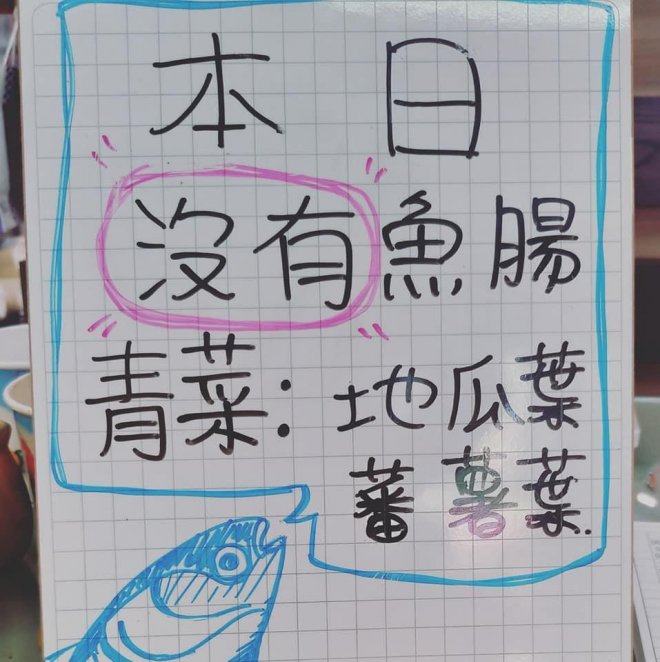 本日
沒有魚腸
青菜：地瓜葉
蕃薯葉.